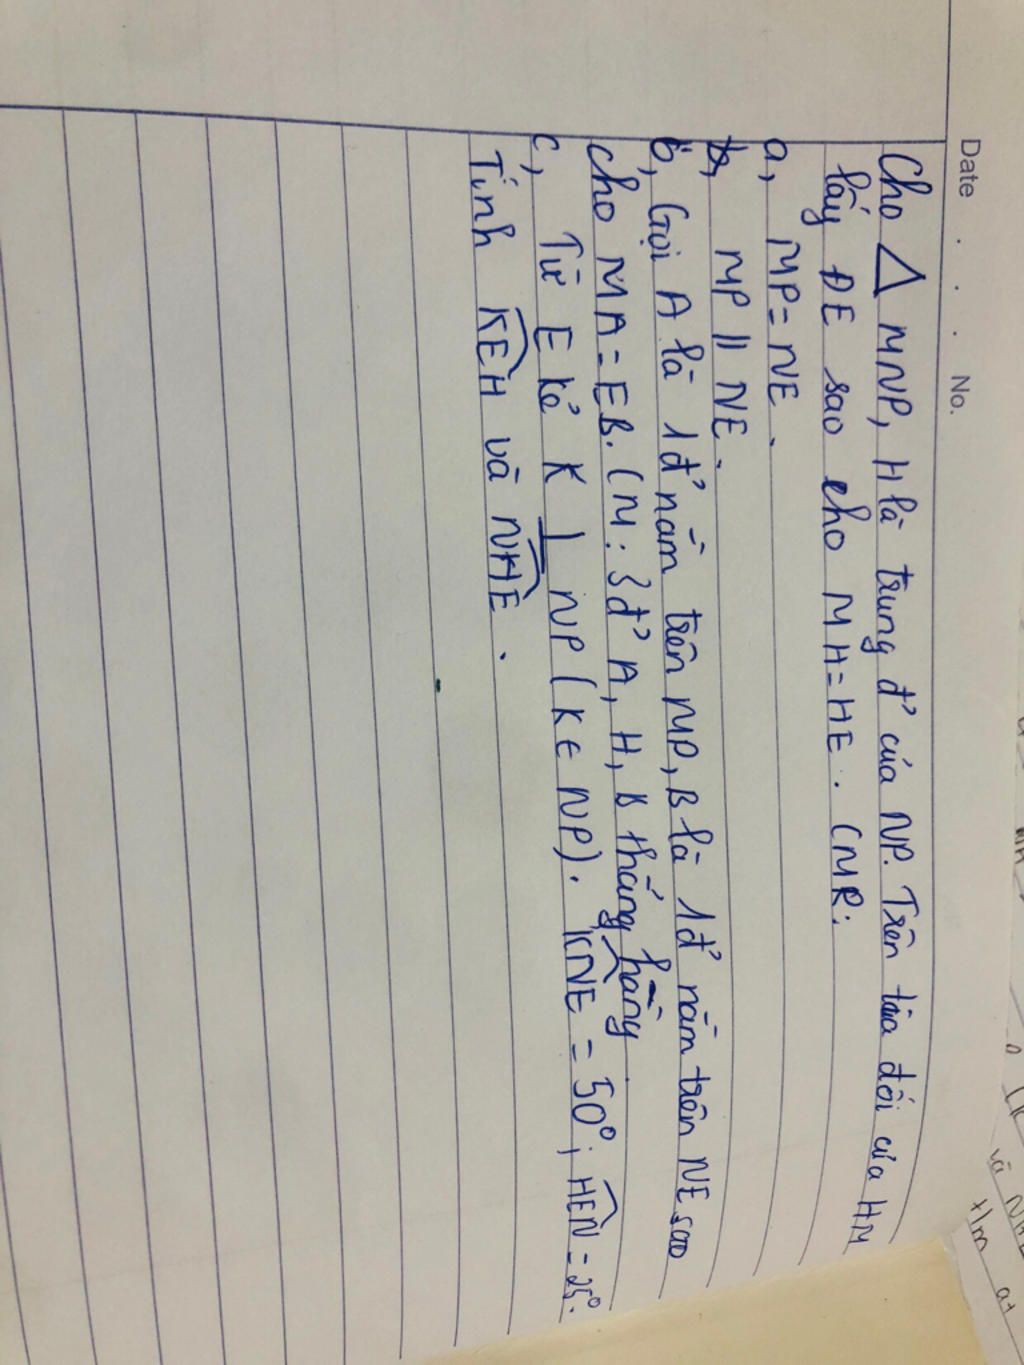 Date . . . No.
Cho △ MNP, H là trung đ' của NP. Trên tia đối của HM
lấy ĐE sao cho MH=HE. CMR:
a, MP=NE.
MP || NE.
b, Gọi A là 1đ' nằm trên MP, B là 1đ' nằm trên NE sao
cho MA=EB. CM: 3đ' A, H, B thẳng hàng
c, Từ E kẻ K ⊥ NP (K∈ NP). KNE = 50°; HEN = 25°.
Tính KEH và NHE.